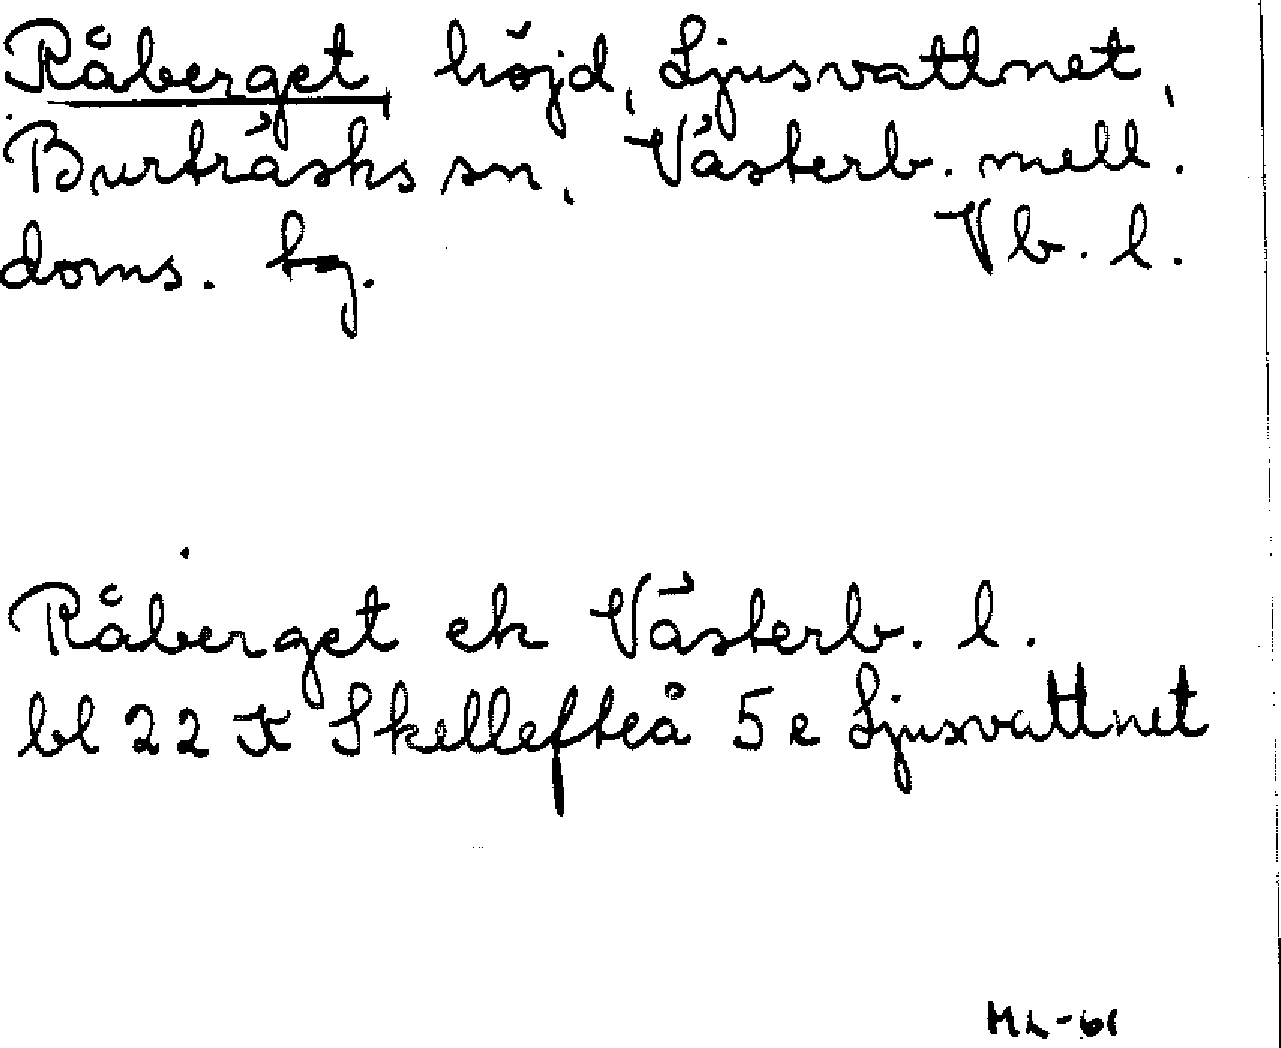 Råberget, höjd, Ljusvattnet,
Burträsks sn, Västerb. mell.
doms. tg. Vb. l.
Råberget ek Västerb. l.
bl 22 K Skellefteå 5e Ljusvattnet